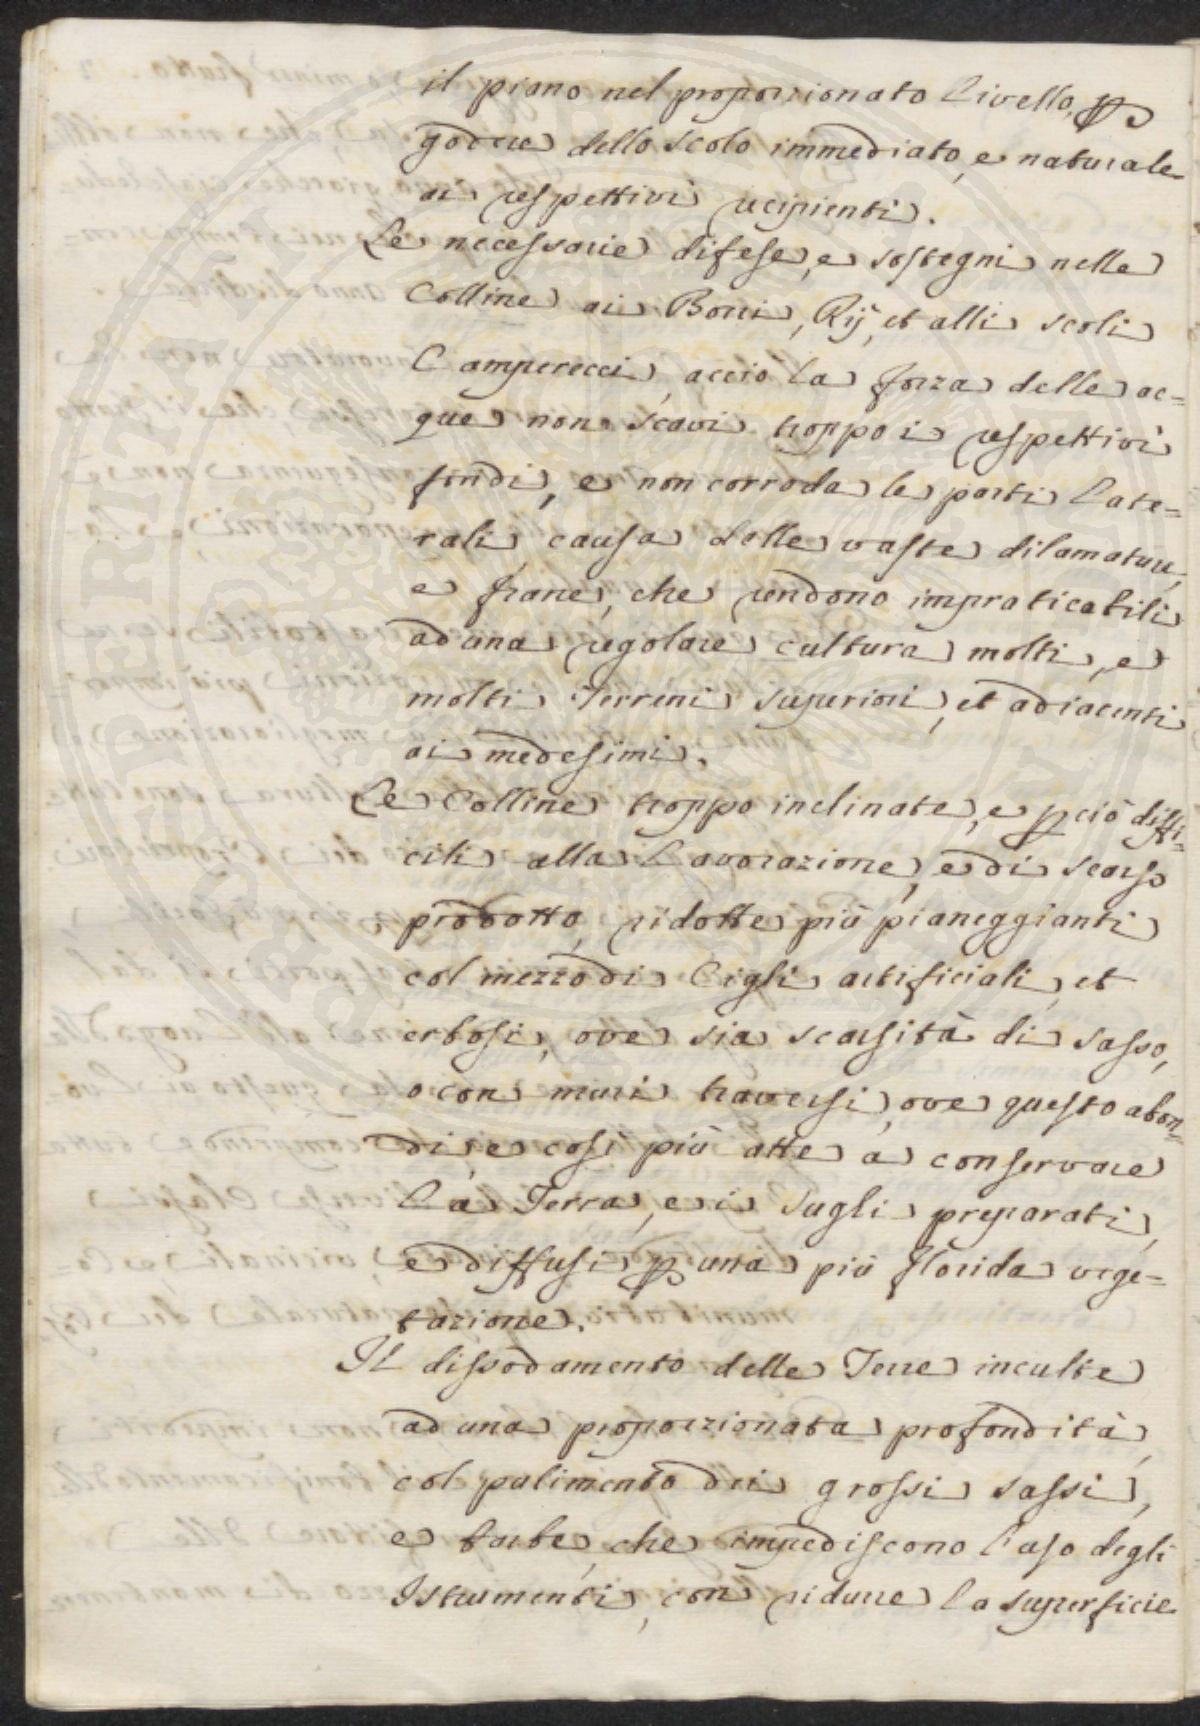 il piano nel proporzionato Livello, p
godere dello scolo immediato, e naturale
ai respettivi recipienti.
Le necessarie difese, e sostegni nelle
Colline ai Borri, Rij, et alli scoli
Camperecci, acciò la forza delle ac=
que non scavi troppo i respettivi
fondi, e non corroda le parti Late=
rali, causa delle vaste dilamature,
e frane, che rendono impraticabili
ad una regolare cultura molti, e
molti Terreni superiori, et adiacenti
ai medesimi.
Le Colline troppo inclinate, e pciò diffi=
cili alla Lavorazione, e di scarso
prodotto, ridotte più pianeggianti
col mezzo di Cigli artificiali, et
erbosi, ove sia scarsità di sasso,
o con muri traversi, ove questo abon=
di, e così più atte a conservare
La Terra, e i sugli preparati,
e diffusi p una più florida vege=
tazione.
Il dissodamento delle Terre inculte
ad una proporzionata profondità,
col pulimento dei grossi sassi,
e barbe, che impediscono l'uso degli
Istrumenti, con ridurre la superficie